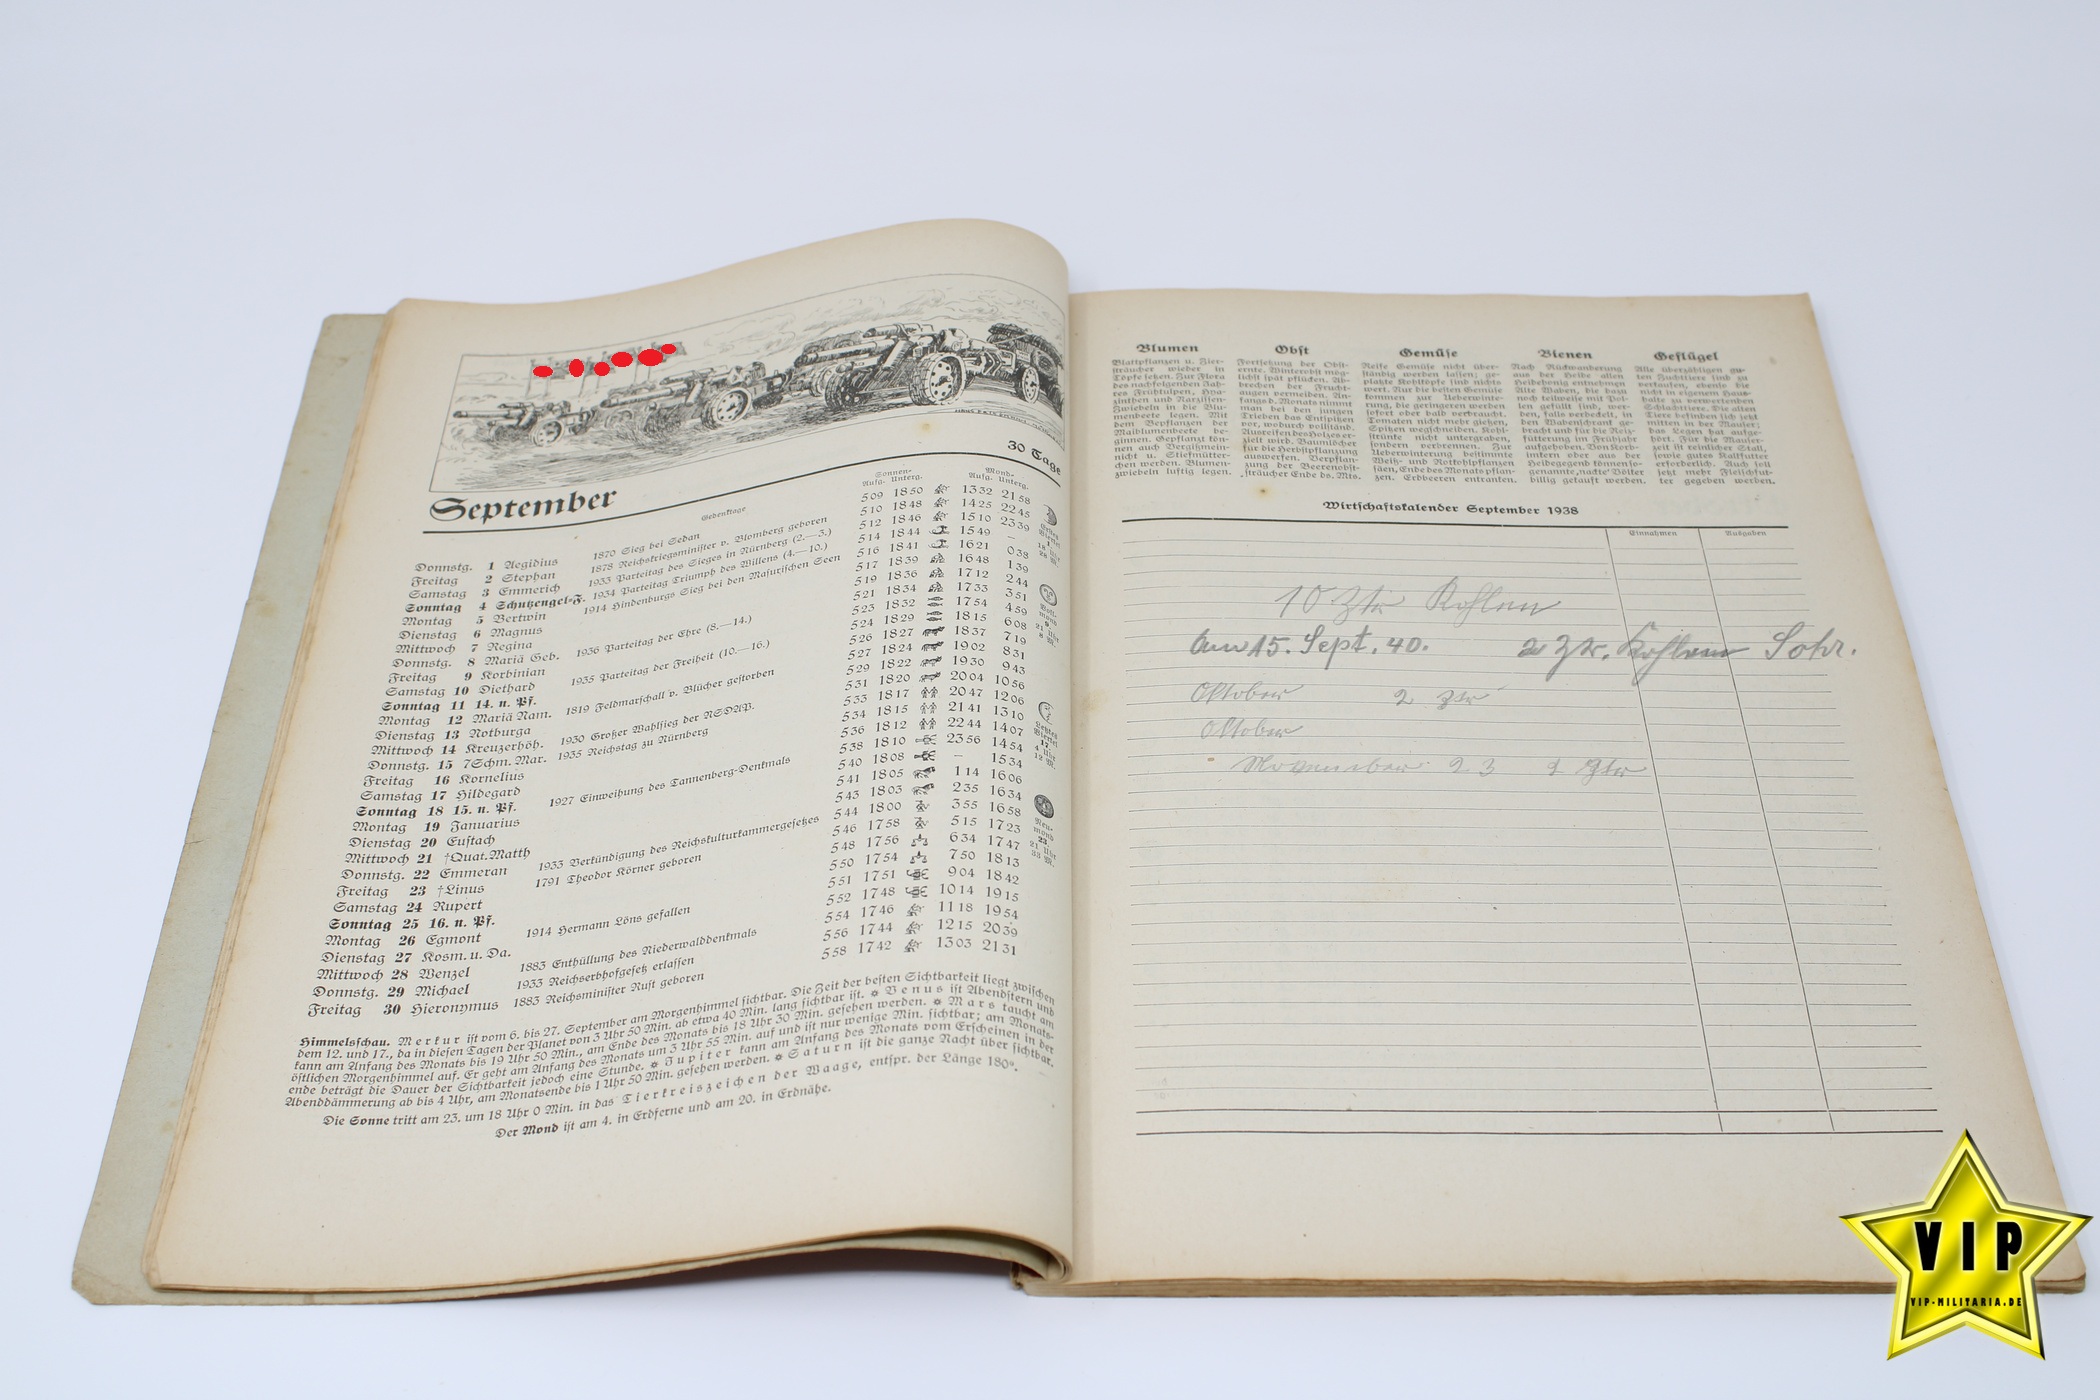 30 Tage
September
Gedenktage
Sonnen-
Aufg. Unterg.
Mond-
Aufg. Unterg.
Donnstg. 1 Aegidius 1870 Sieg bei Sedan 5 09 18 50 13 32 21 58
Freitag 2 Stephan 1878 Reichskriegsminister v. Blomberg geboren 5 10 18 48 14 25 22 45
Samstag 3 Emmerich 1933 Parteitag des Sieges in Nürnberg (2.—3.) 5 12 18 46 15 10 23 39
Sonntag 4 Schutzengel-F. 1934 Parteitag Triumph des Willens (4.—10.) 5 14 18 44 15 49 –
Montag 5 Bertwin 1914 Hindenburgs Sieg bei den Masurischen Seen 5 16 18 41 16 21 0 38
Dienstag 6 Magnus 5 17 18 39 16 48 1 39
Mittwoch 7 Regina 5 19 18 36 17 12 2 44
Donnstg. 8 Mariä Geb. 1936 Parteitag der Ehre (8.—14.) 5 21 18 34 17 33 3 51
Freitag 9 Korbinian 5 23 18 32 17 54 4 59
Samstag 10 Diethard 1935 Parteitag der Freiheit (10.—16.) 5 24 18 29 18 15 6 08
Sonntag 11 14. n. Pf. 5 26 18 27 18 37 7 19
Montag 12 Mariä Nam. 1819 Feldmarschall v. Blücher gestorben 5 27 18 24 19 02 8 31
Dienstag 13 Notburga 5 29 18 22 19 30 9 43
Mittwoch 14 Kreuzerhöh. 1930 Großer Wahlsieg der NSDAP. 5 31 18 20 20 04 10 56
Donnstg. 15 7Schm. Mar. 1935 Reichstag zu Nürnberg 5 33 18 17 20 47 12 06
Freitag 16 Kornelius 5 34 18 15 21 41 13 10
Samstag 17 Hildegard 5 36 18 12 22 44 14 07
Sonntag 18 15. n. Pf. 1927 Einweihung des Tannenberg-Denkmals 5 38 18 10 23 56 14 54
Montag 19 Januarius 5 40 18 08 – 15 34
Dienstag 20 Eustach 5 41 18 05 1 14 16 06
Mittwoch 21 †Quat. Matth 5 43 18 03 2 35 16 34
Donnstg. 22 Emmeran 1933 Verkündigung des Reichskulturkammergesetzes 5 44 18 00 3 55 16 58
Freitag 23 †Linus 1791 Theodor Körner geboren 5 46 17 58 5 15 17 23
Samstag 24 Rupert 5 48 17 56 6 34 17 47
Sonntag 25 16. n. Pf. 5 50 17 54 7 50 18 13
Montag 26 Egmont 1914 Hermann Löns gefallen 5 51 17 51 9 04 18 42
Dienstag 27 Kosm. u. Da. 5 52 17 48 10 14 19 15
Mittwoch 28 Wenzel 1883 Enthüllung des Niederwalddenkmals 5 54 17 46 11 18 19 54
Donnstg. 29 Michael 1933 Reichserbhofgesetz erlassen 5 56 17 44 12 15 20 39
Freitag 30 Hieronymus 1883 Reichsminister Rust geboren 5 58 17 42 13 03 21 31
Himmelsschau. Merkur ist vom 6. bis 27. September am Morgenhimmel sichtbar. Die Zeit der besten Sichtbarkeit liegt zwischen
dem 12. und 17., da in diesen Tagen der Planet von 3 Uhr 50 Min. ab etwa 40 Min. lang sichtbar ist. * Venus ist Abendstern und
kann am Anfang des Monats bis 19 Uhr 50 Min., am Ende des Monats bis 18 Uhr 30 Min. gesehen werden. * Mars taucht am
östlichen Morgenhimmel auf. Er geht am Anfang des Monats um 3 Uhr 55 Min. auf und ist nur wenige Min. sichtbar; am Monats-
ende beträgt die Dauer der Sichtbarkeit jedoch eine Stunde. * Jupiter kann am Anfang des Monats vom Erscheinen in der
Abenddämmerung ab bis 4 Uhr, am Monatsende bis 1 Uhr 50 Min. gesehen werden. * Saturn ist die ganze Nacht über sichtbar.
Die Sonne tritt am 23. um 18 Uhr 0 Min. in das Tierkreiszeichen der Waage, entspr. der Länge 180°.
Der Mond ist am 4. in Erdferne und am 20. in Erdnähe.
Blumen
Blattpflanzen u. Zier-
sträucher wieder in
Töpfe setzen. Zur Flora
des nachfolgenden Jah-
res Frühtulpen, Hya-
zinthen und Narzissen-
Zwiebeln in die Blu-
menbeete legen. Mit
dem Bepflanzen der
Maiblumenbeete be-
ginnen. Gepflanzt kön-
nen auch Vergißmein-
nicht u. Stiefmütter-
chen werden. Blumen-
zwiebeln luftig legen.
Obst
Fortsetzung der Obst-
ernte. Winterobst mög-
lichst spät pflücken. Ab-
brechen der Frucht-
augen vermeiden. An-
fangs d. Monats nimmt
man bei den jungen
Trieben das Entspitzen
vor, wodurch vollständ.
Ausreifen des Holzes er-
zielt wird. Baumlöcher
für die Herbstpflanzung
auswerfen. Verpflan-
zung der Beerenobst-
sträucher Ende ds. Mts.
Gemüse
Reife Gemüse nicht über-
ständig werden lassen; ge-
platzte Kohlköpfe sind nichts
wert. Nur die besten Gemüse
kommen zur Ueberwinte-
rung, die geringeren werden
sofort oder bald verbraucht.
Tomaten nicht mehr gießen,
Spitzen wegschneiden. Kohl-
strünke nicht untergraben,
sondern verbrennen. Zur
Ueberwinterung bestimmte
Weiß- und Rotkohlpflanzen
säen, Ende des Monats pflan-
zen. Erdbeeren entranken.
Bienen
Nach Rückwanderung
aus der Heide allen
Heidehonig entnehmen
Alte Waben, die dazu
noch teilweise mit Pol-
len gefüllt sind, wer-
den, falls verdeckelt, in
den Wabenschrank ge-
bracht und für die Reiz-
fütterung im Frühjahr
aufgehoben. Von Korb-
imkern oder aus der
Heidegegend können so-
genannte „nackte“ Völker
billig gekauft werden.
Geflügel
Alle überzähligen gu-
ten Zuchttiere sind zu
verkaufen, ebenso die
nicht in eigenem Haus-
halte zu verwertenden
Schlachttiere. Die alten
Tiere befinden sich jetzt
mitten in der Mauser;
das Legen hat aufge-
hört. Für die Mauser-
zeit ist reinlicher Stall,
sowie gutes Kalkfutter
erforderlich. Auch soll
jetzt mehr Fleischfut-
ter gegeben werden.
Wirtschaftskalender September 1938
Einnahmen
Ausgaben
10 Ztr Kohlen
Am 15. Sept. 40. 2 Ztr. Kohlen Sohr.
Oktober 2 Ztr
Oktober
November 23 2 Ztr
VIP
VIP-MILITARIA.DE